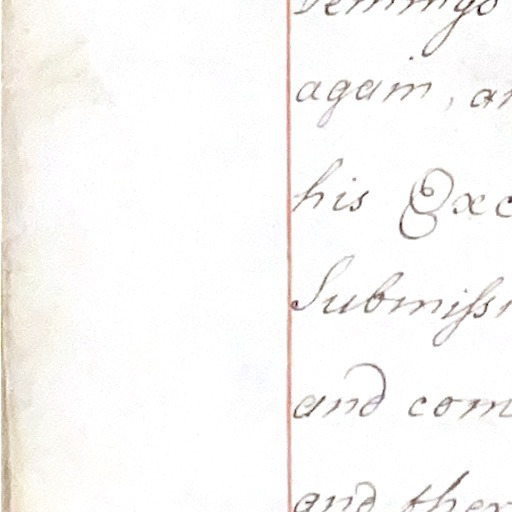 again, an
his Exc
Submissi
and com
and ther